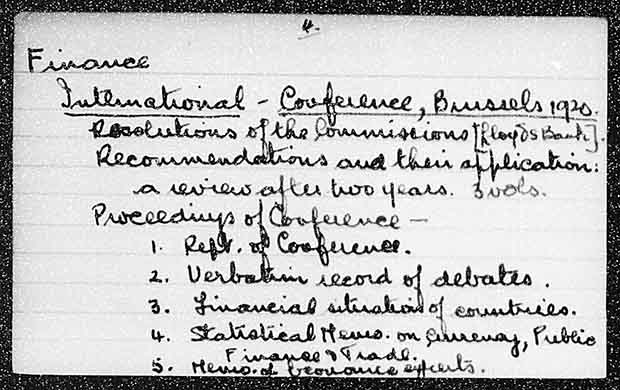 4.
Finance
International - Conference, Brussels 1920.
Resolutions of the Commissions [Lloyds Bank].
Recommendations and their application:
a review after two years. 3 vols.
Proceedings of Conference —
1. Rept. of Conference.
2. Verbatim record of debates.
3. Financial situation of countries.
4. Statistical Memo. on Currency, Public
Finance & Trade.
5. Memo. of economic experts.